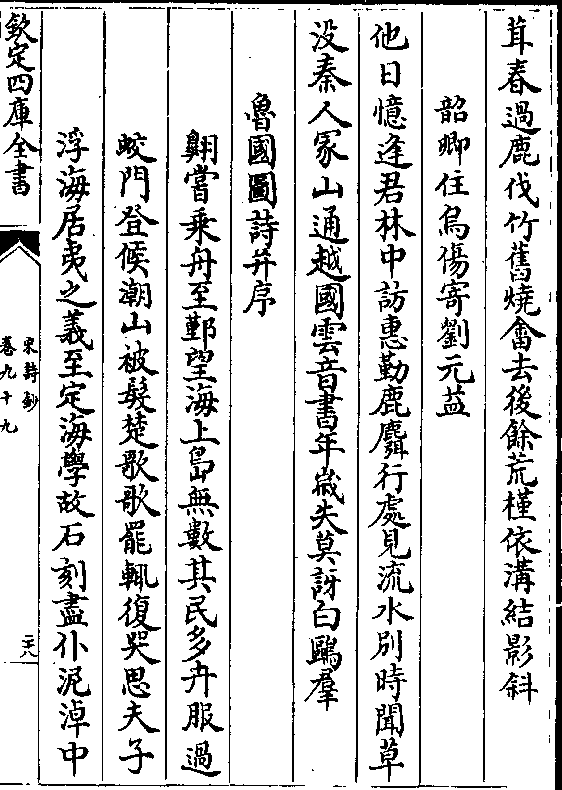 茸春過鹿伐竹舊燒畬去後餘荒槿依溝結影斜
韶卿住烏傷寄劉元益
他日憶逢君林中訪惠勤鹿麛行處見流水別時聞草
没秦人冢山通越國雲音書年嵗失莫訝白鷗羣
魯國圖詩并序
翺嘗乗舟至鄞望海上島無數其民多卉服過
蛟門登候潮山被髮楚歌歌罷輒復哭思夫子
浮海居夷之義至定海學故石刻盡仆泥淖中
欽定四庫全書
宋詩鈔
卷九十九
二八